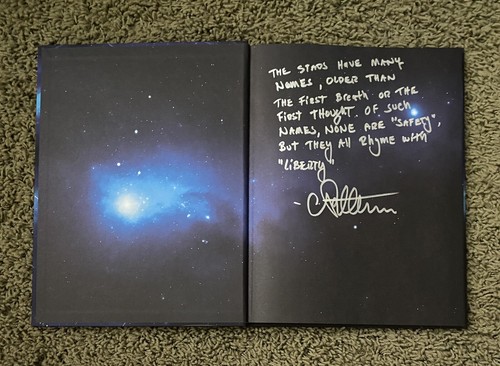 THE STARS HAVE MANY
NAMES, OLDER THAN
THE FIRST BREATH OR THE
FIRST THOUGHT. OF SUCH
NAMES, NONE ARE "SAFETY",
BUT THEY ALL RHYME WITH
"LIBERTY"